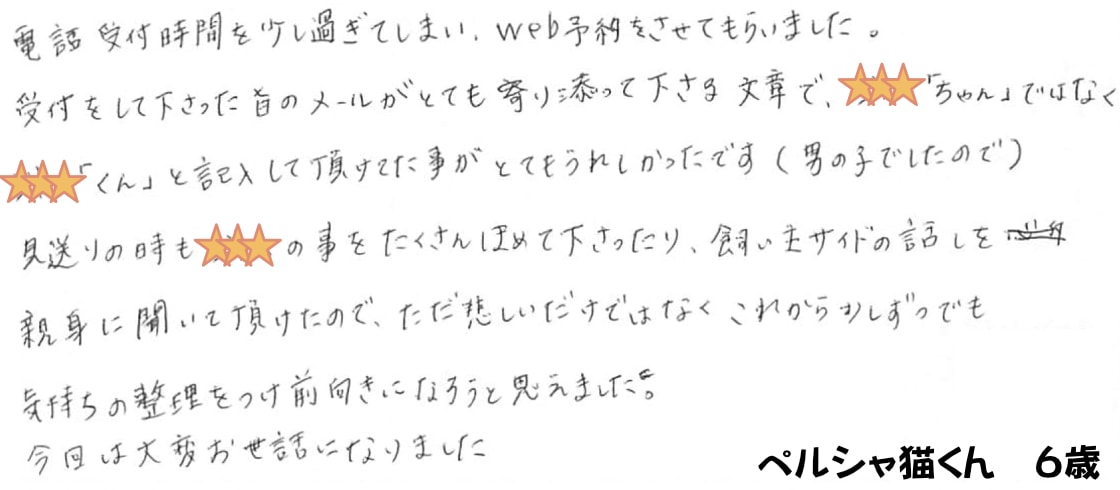 電話受付時間を少し過ぎてしまい、web予約をさせてもらいました。
受付をして下さった旨のメールがとても寄り添って下さる文章で、「ちゃん」ではなく
「くん」と記入して頂けてた事がとてもうれしかったです(男の子でしたので)
見送りの時もの事をたくさんほめて下さったり、飼い主サイドの話しを
親身に聞いて頂けたので、ただ悲しいだけではなくこれから少しずつでも
気持ちの整理をつけ前向きになろうと思えました。
今回は大変お世話になりました
ペルシャ猫くん 6歳